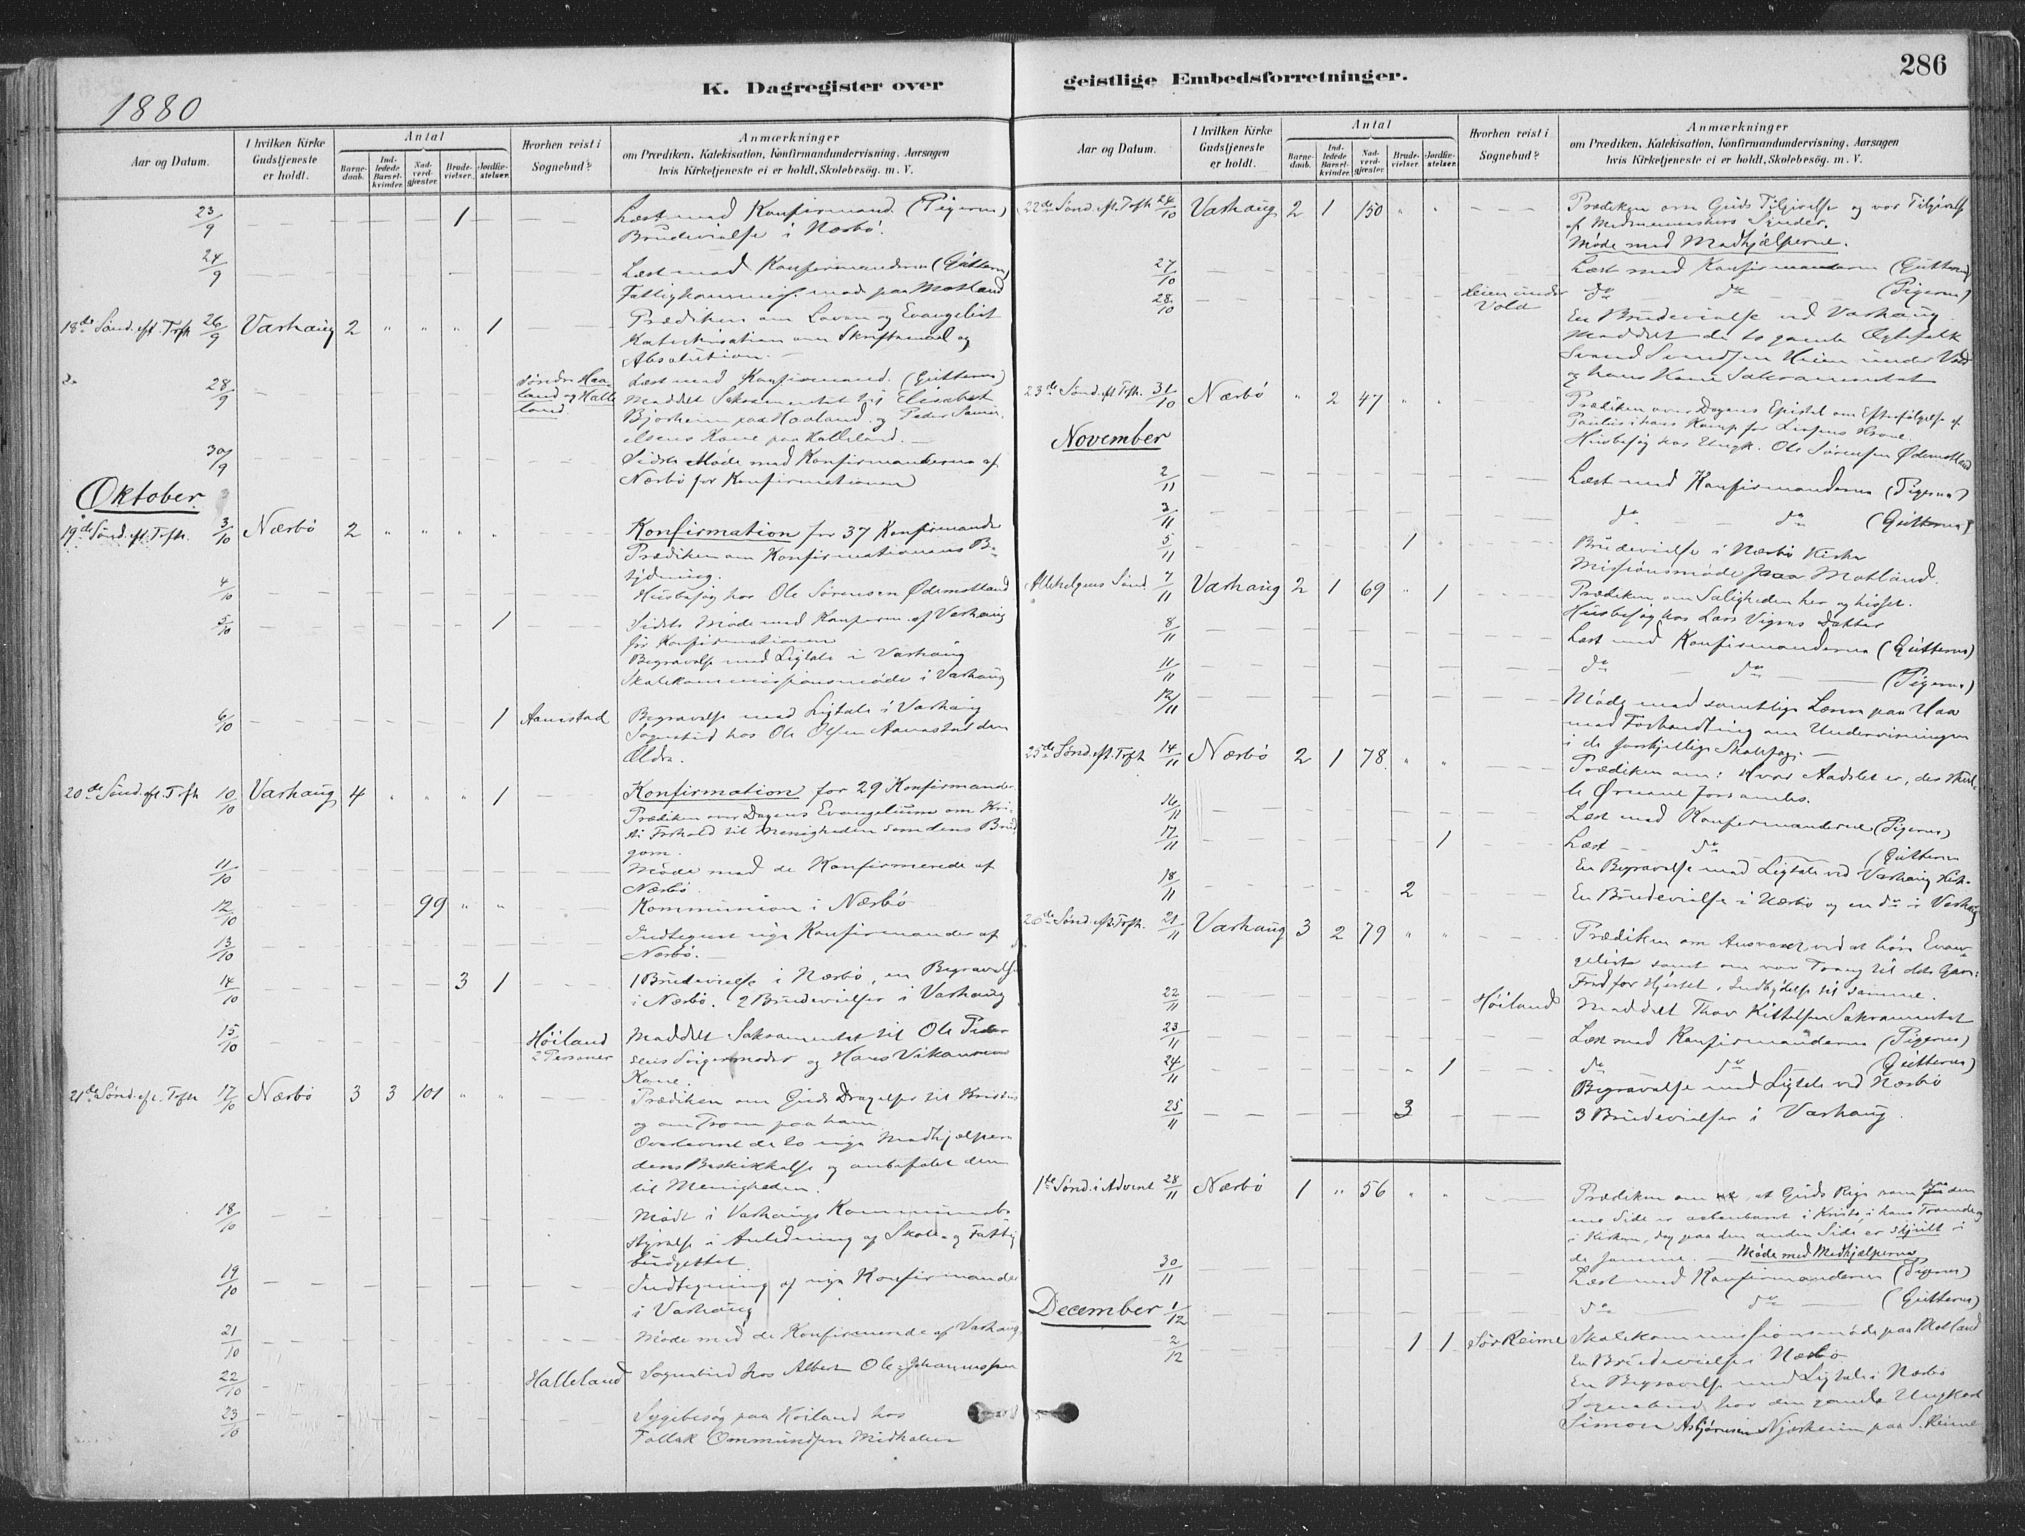 1880
K. Dagregister over
Aar og Datum.
I hvilken Kirke Gudstjeneste er holdt.
Antal
Barnedaab.
Indledede Barselkvinder.
Nadverdgjæster.
Brudevielser.
Jordfæstelser.
Hvorhen reist i Sognebud?
Anmærkninger
om Prædiken, Katekisation, Konfirmandundervisning, Aarsagen
hvis Kirketjeneste ei er holdt, Skolebesøg. m. V.
23/9 1 Læst med Konfirmand. (Pigerne)
Brudevielse i Nærbø.
24/9 Læst med Konfirmanderne (Gutterne)
Fattigkommis. mød paa Motland
18de Sønd. eft. Trft. 26/9 Varhaug 2 " " " 1 Prædiken om Loven og Evangeliet
Katechisation om Skriftemaal og
Absolution.
28/9 Søndre Haaland og Halleland Læst med Konfirmand. (Gutterne)
Meddelt Sakramentet til Elisabet
Bjorheim paa Haaland og Peder
Kone paa Halleland.
30/9 Sidste Møde med Konfirmanderne af
Nærbø før Konfirmationen
Oktober.
19de Sønd. eft. Trft. 3/10 Nærbø 2 " " " " Konfirmation for 37 Konfirmander
Prædiken om Konfirmationens Betydning.
4/10 Husbesøg hos Ole Sørensen Ødemotland
5/10 1 Sidste Møde med Konfirm. af Varhaug
før Konfirmationen
Begravelse med Ligtale i Varhaug
Skolekommissionsmøde i Varhaug
6/10 1 Aanestad Begravelse med Ligtale i Varhaug
Sognebud hos Ole Olsen Aanestad den
Ældre.
20de Sønd. eft. Trft. 10/10 Varhaug 4 " " " 1 Konfirmation for 29 Konfirmander
Prædiken over Dagens Evangelium om Kristi Forhold til Menigheden som dens Brudgom.
11/10 Møde med de Konfirmerede af
Nærbø.
12/10 99 " " Kommunion i Nærbø
13/10 Indtegnet nye Konfirmander af
Nærbø.
14/10 3 1 1 Brudevielse i Nærbø, en Begravelse
i Nærbø. 2 Brudevielser i Varhaug
15/10 Høiland 2 Personer Meddelt Sakramentet til Ole Pedersens Svigermoder og Hans
Kone.
21de Sønd. eft. Trft. 17/10 Nærbø 3 3 101 " " Prædiken om Guds Dragelse til Kristus
og om Troen paa ham.
de to nye Medhjælpere
deres Beskikkelse og anbefalet dem
til Menigheden.
18/10 Mødt i Varhaugs Kommunebestyrelse i Anledning af Skole- og Fattigbudgettet.
19/10 Indtegning af nye Konfirmander
i Varhaug
21/10 Møde med de Konfirmerede af Varhaug.
22/10 Halleland Sognebud hos Albert Ole Johannessen
23/10 Sygebesøg paa Høiland hos
Tollak Ommundsen
geistlige Embedsforretninger.
286
Aar og Datum.
I hvilken Kirke Gudstjeneste er holdt.
Antal
Barnedaab.
Indledede Barselkvinder.
Nadverdgjæster.
Brudevielser.
Jordfæstelser.
Hvorhen reist i Sognebud?
Anmærkninger
om Prædiken, Katekisation, Konfirmandundervisning, Aarsagen
hvis Kirketjeneste ei er holdt, Skolebesøg. m. V.
22de Sønd. eft. Trft. 24/10 Varhaug 2 1 150 " " Prædiken om Guds Tilgivelse og vor Tilgivelse
af Medmenneskers Synder.
Møde med Medhjælperne.
27/10 Læst med Konfirmanderne (Gutterne)
28/10 Heien under Vold do do (Pigerne)
En Brudevielse ved Varhaug.
Meddelt de to gamle Ægtefolk
Svend Svendsen Heien under Vold
og hans Kone Sakramentet
23de Sønd. eft. Trft. 31/10 Nærbø " 2 47 " " Prædiken over Dagens Epistel om Efterfølgelse af
Paulus i hans Kamp for Livsens Krone.
Husbesøg hos Ungk. Ole Sørensen Ødemotland
November
2/11 Læst med Konfirmanderne (Pigerne)
3/11 do do (Gutterne)
5/11 1 Brudevielse i Nærbø Kirke
Missionsmøde paa Motland.
Allehelgens Sønd. 7/11 Varhaug 2 1 69 " 1 Prædiken om Saligheden her og hisset.
Husbesøg hos Lars Vigres Datter
8/11 Læst med Konfirmanderne (Gutterne)
11/11 do do (Pigerne)
12/11 Møde med samtlige Lærere paa Haa
med Forhandling om Undervisningen
i de forskjellige Skolefag.
25de Sønd. eft. Trft. 14/11 Nærbø 2 1 78 " " Prædiken om: Hvor Aadslet er, der skulle Ørnene forsamles.
16/11 Læst med Konfirmanderne (Pigerne)
17/11 1 Læst do (Gutterne
En Begravelse med Ligtale ved Varhaug Kirke
18/11 2 En Brudevielse i Nærbø og en do i Varhaug
26de Sønd. eft. Trft. 21/11 Varhaug 3 2 79 " " Prædiken om Ansvaret ved at høre Evangeliet samt om vor Trang til dets
Fred for Hjertet, Indbydelse til samme.
22/11 Høiland Meddelt Thor Kittelsen Sakramentet
23/11 Læst med Konfirmanderne (Pigerne)
24/11 " 1 do do (Gutterne)
Begravelse med Ligtale ved Nærbø
25/11 3 3 Brudevielser i Varhaug.
1ste Sønd. i Advent 28/11 Nærbø 1 " 56 " " Prædiken om, at Guds Rige som paa den
ene Side er aabenbaret i Kristo, i hans
i Kirken, dog paa den anden Side er skjult i
de Møde med Medhjælperne
30/11 Læst med Konfirmanderne (Pigerne)
December 1/12 do do (Gutterne)
2/12 1 1 Sør Reime Skolekommissionsmøde paa Motland
En Brudevielse i Nærbø.
En Begravelse med Ligtale i Nærbø
Sognebud hos den gamle Ungkarl
Simon Asbjørnsen Njærheim paa S. Reime